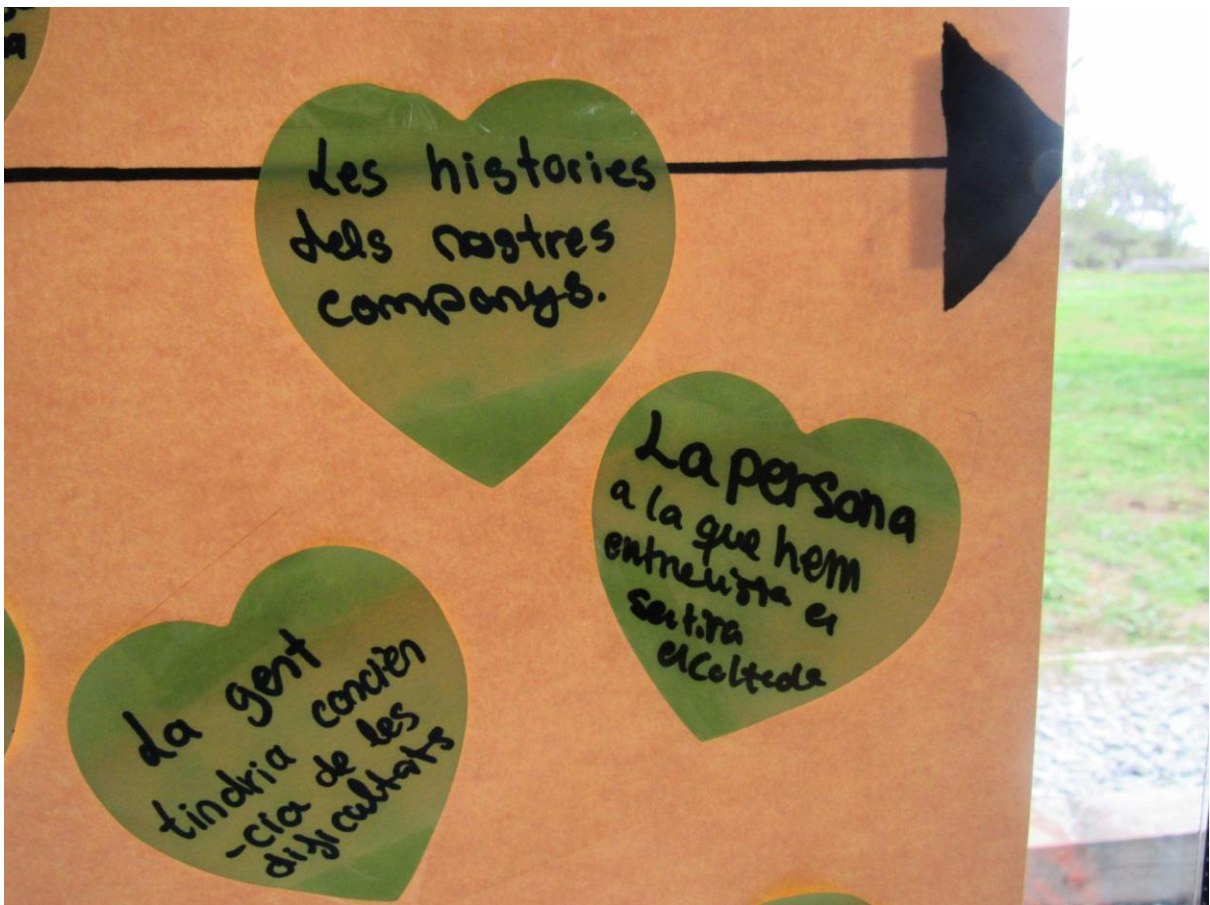 Les histories
dels nostres
companys.
La persona
a la que hem
entrevista es
sentira
escoltada
La gent
tindria concièn
-cia de les
dificultats